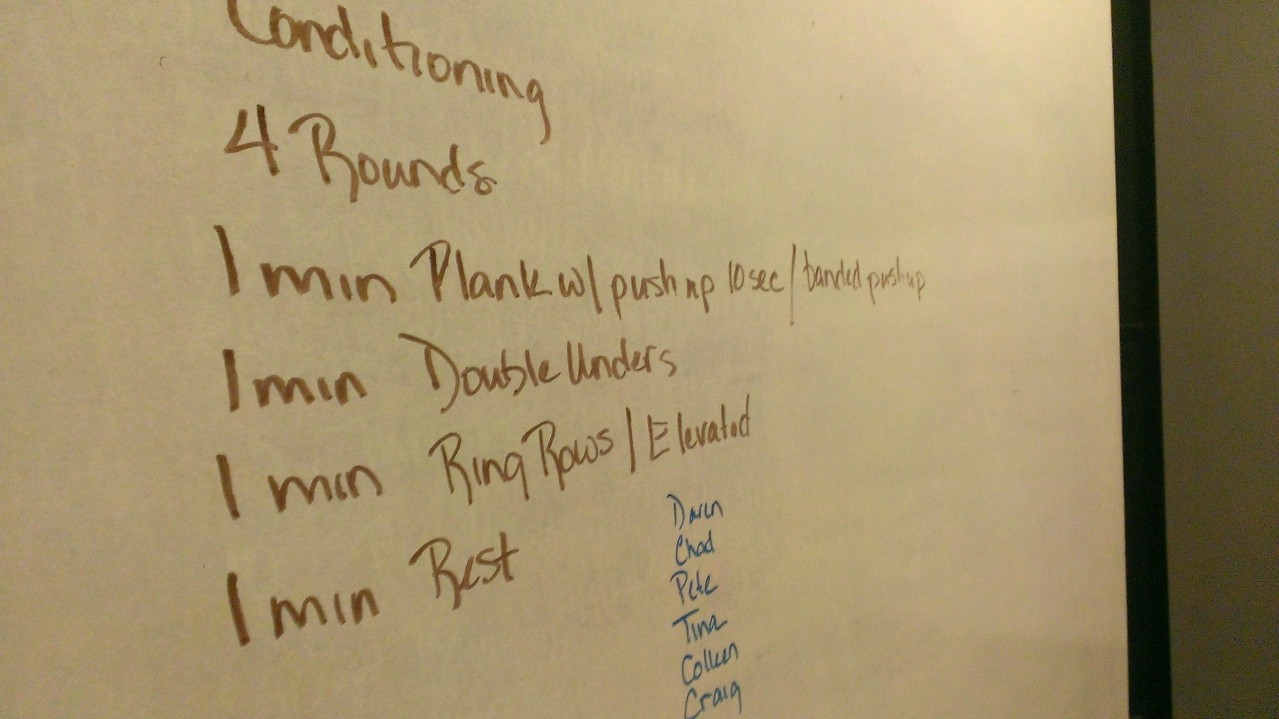 Conditioning
4 Rounds
1 min Plank w/ push up 10 sec / banded pushup
1 min Double Unders
1 min Ring Rows / Elevated
1 min Rest
Daren
Chad
Pete
Tina
Colleen
Craig